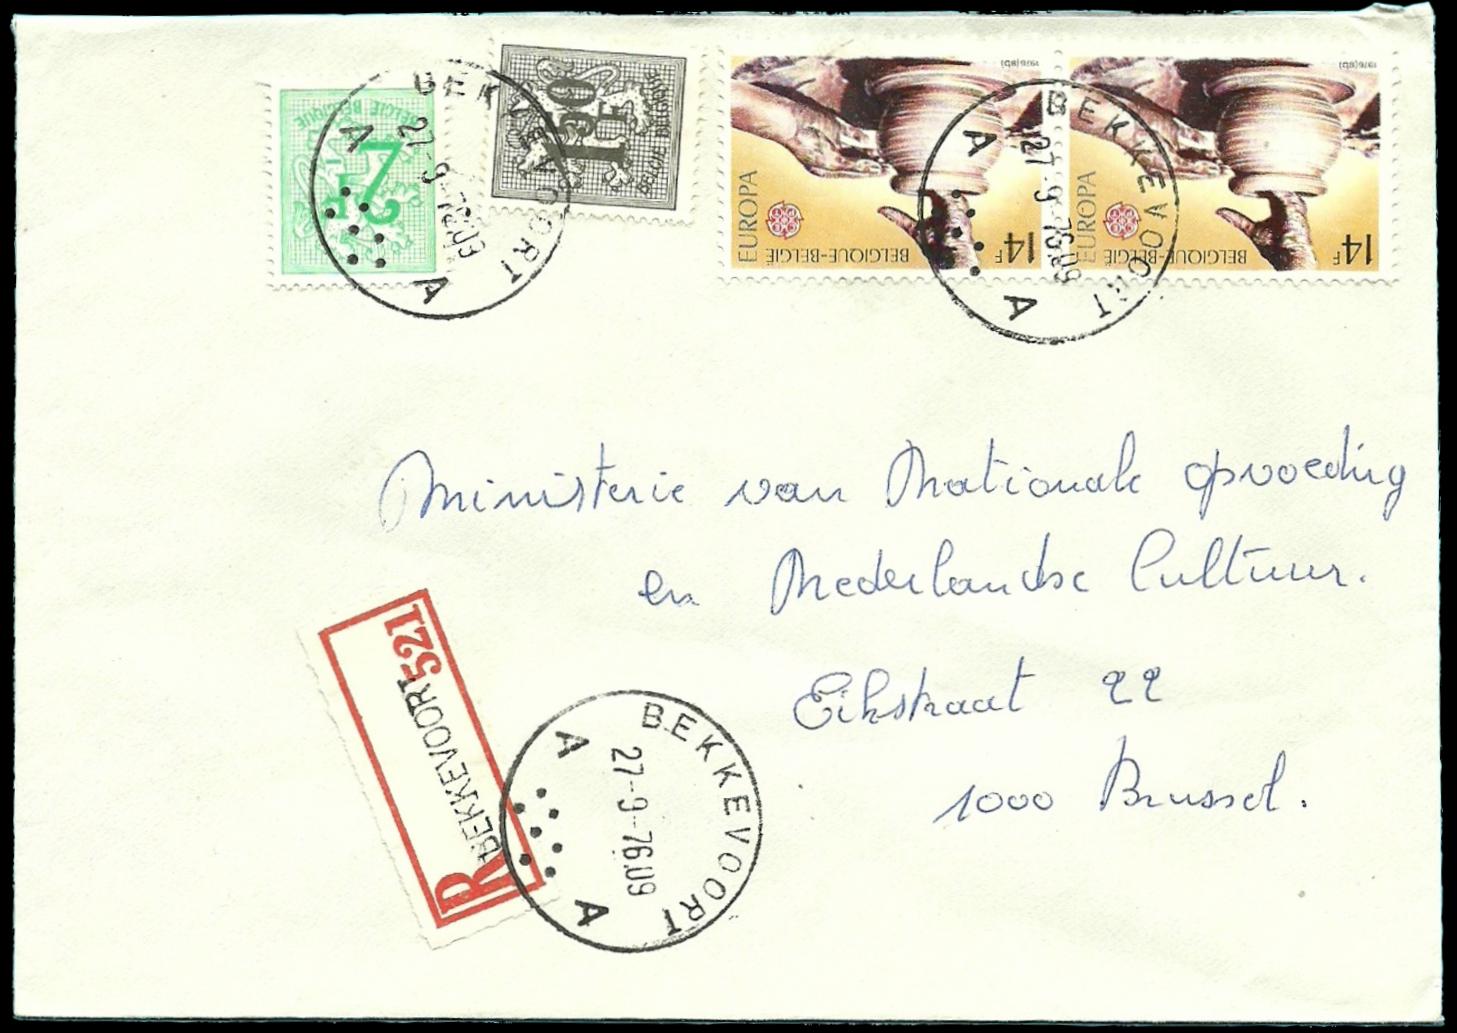 BELGIE BELGIQUE
2F
1F50
BELGIE BELGIQUE
1976(8b)
EUROPA
BELGIQUE-BELGIË
14F
1976(8b)
EUROPA
BELGIQUE-BELGIË
14F
BEKKEVOORT
27-9-76.09
A A
BEKKEVOORT
27-9-76.09
A A
Ministerie van Nationale opvoeding
en Nederlandse Cultuur.
Eikstraat 22
1000 Brussel.
R BEKKEVOORT 521
BEKKEVOORT
27-9-76.09
A A